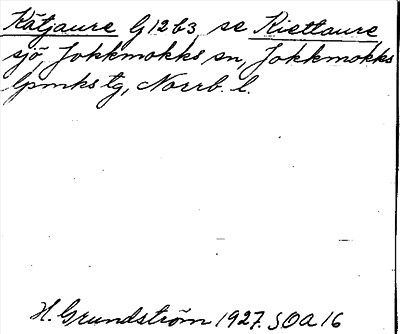 Kätjaure G12b3 se Riettaure
sjö Jokkmokks sn, Jokkmokks
lpmks tg, Norrb. l.
H. Grundström 1927. SOA 16